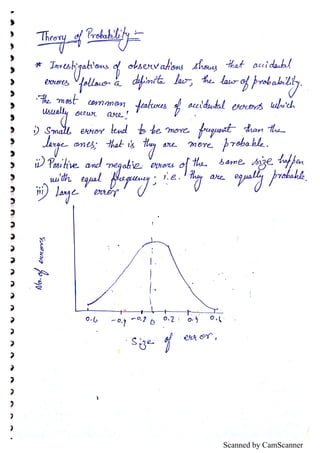 Theory of Probability :-
* Investigations of observations shows that accidental
errors follow a definite law, the law of probability.
The most common features of accidental errors which
usually occur are:
i) Small error tend to be more frequent than the
large ones; that is they are more probable.
ii) Positive and negative errors of the same size happen
with equal frequency; i.e. they are equally probable.
iii) Large error
No. of errors
0.6 -0.4 -0.2 0 0.2 0.4 0.6
Size of error.
Scanned by CamScanner